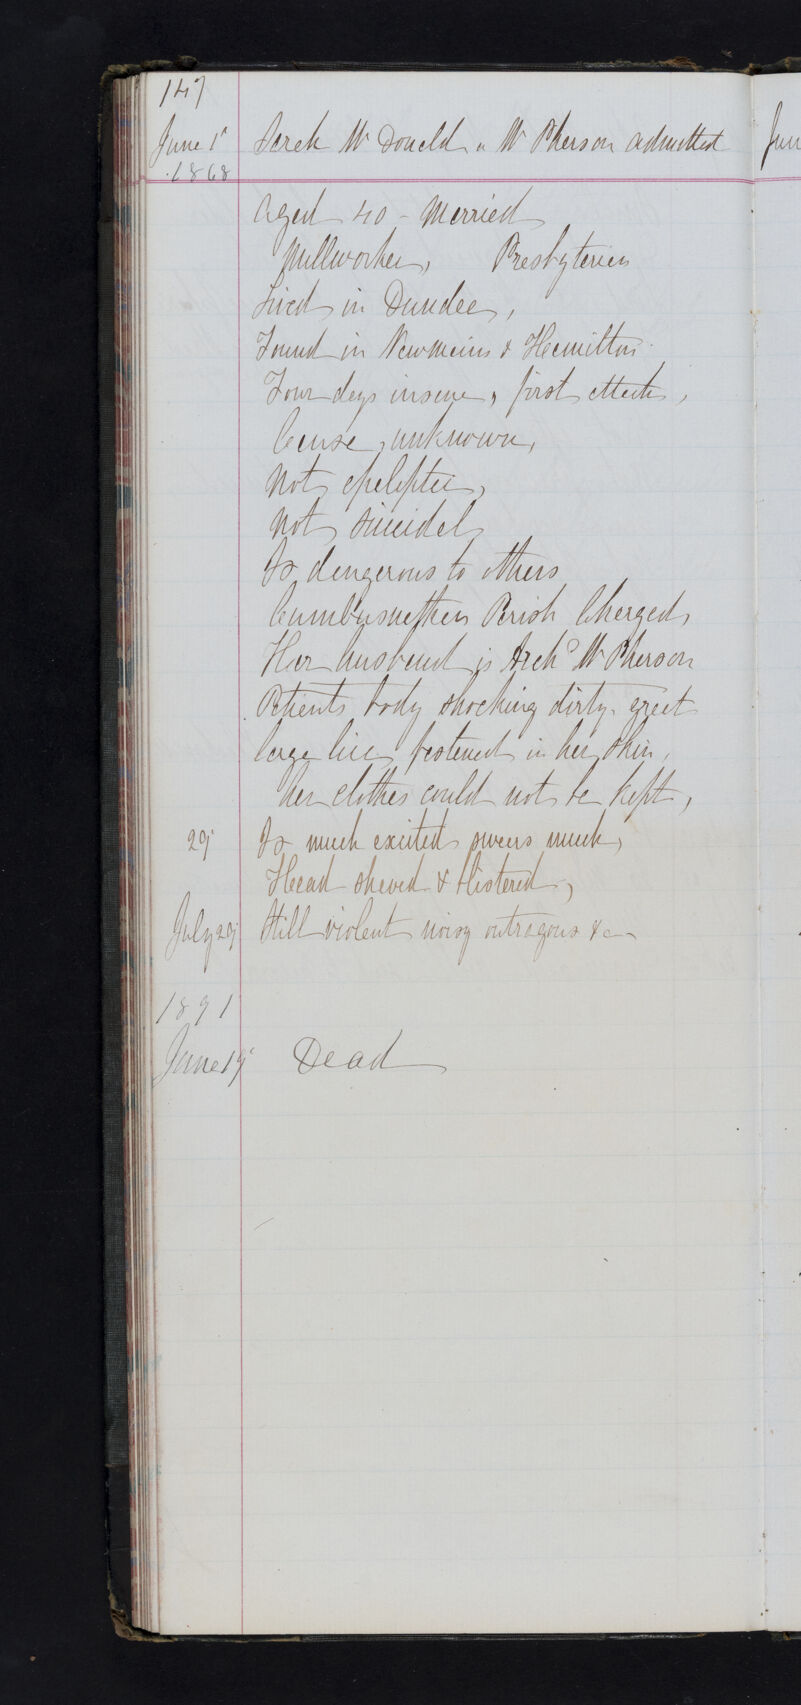 147
June 1st Sarah McDonald or McPherson admitted
1868
Aged 40 - Married
Millworker, Presbyterian
Lived in Dundee,
Found in Newmains & Hamilton
Four days insane, first attack,
Cause unknown,
Not epileptic,
Not suicidal
Is dangerous to others
Cambusnethan Parish Charged,
Her husband is Archd McPherson
Patients body shocking dirty, great
large lice fastened in her skin,
her clothes could not be kept,
29 Is much excited swears much,
Head shaved & blistered,
July 29 Still violent noisy outragous &c
1891
June 19 Dead
Jun